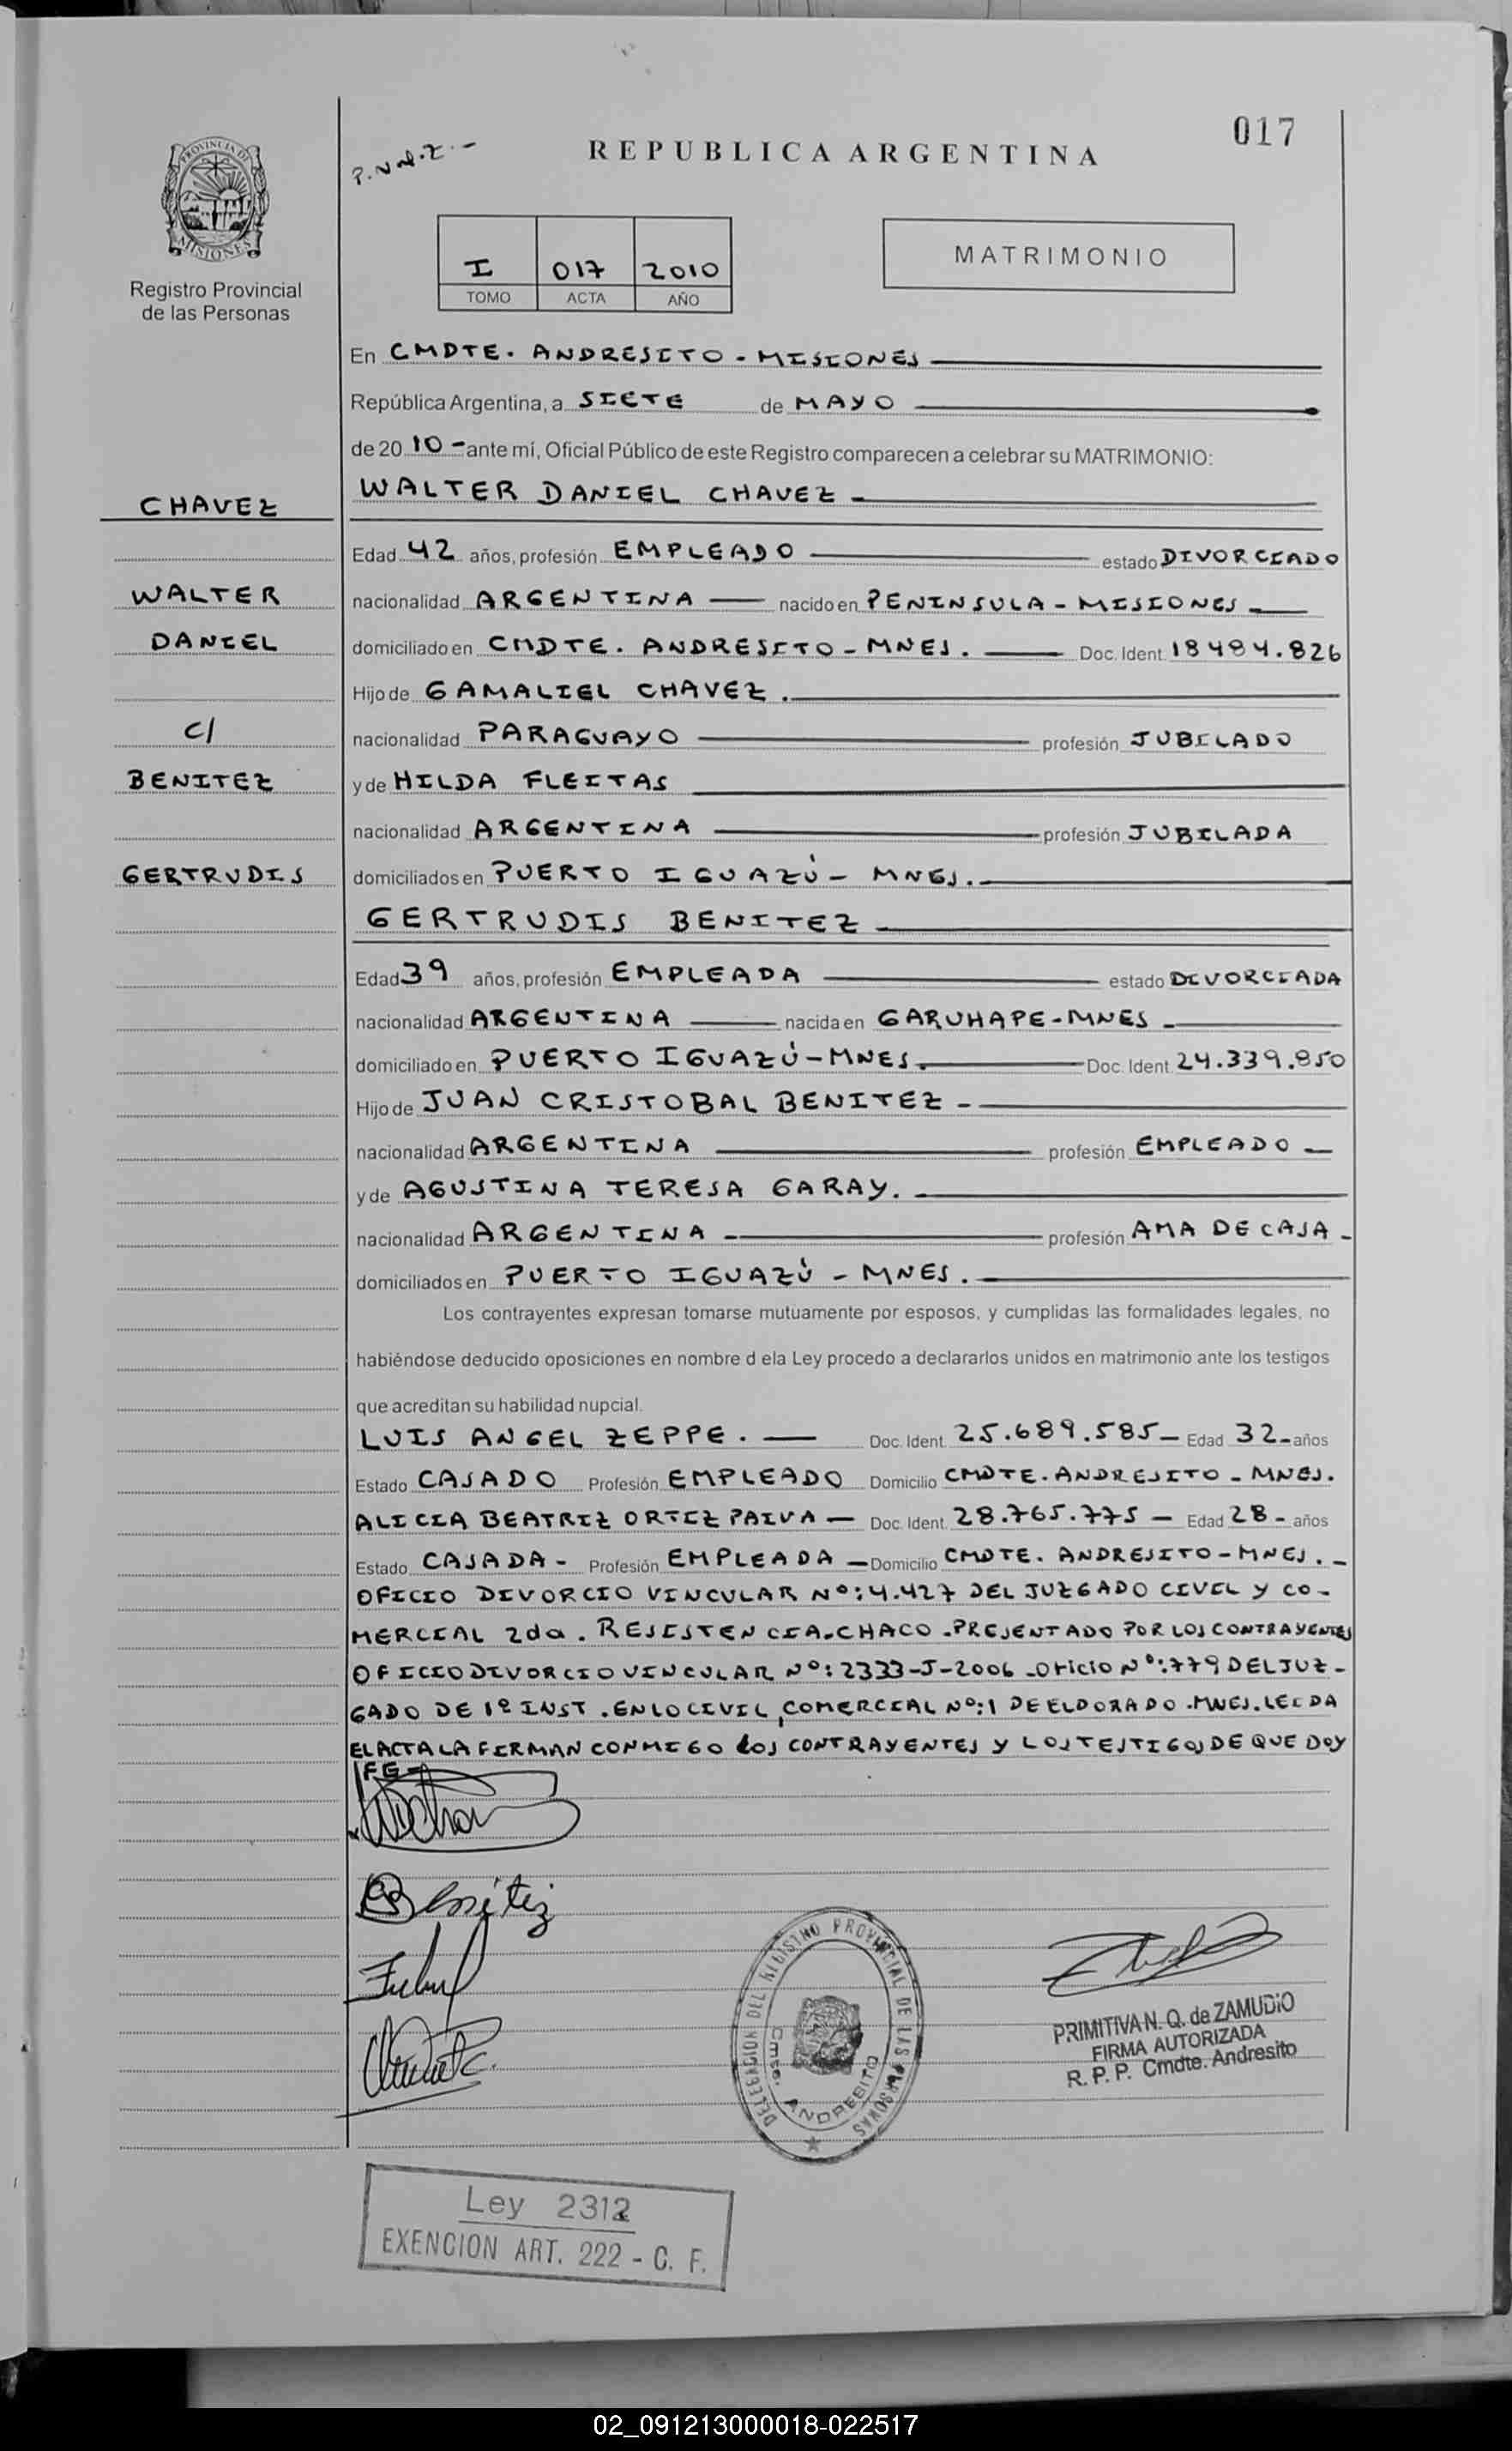 017
P.N.N.Z.-
REPUBLICA ARGENTINA
PROVINCIA DE MISIONES
Registro Provincial
de las Personas
I 017 2010
TOMO ACTA AÑO
MATRIMONIO
En CMDTE. ANDRESITO - MISIONES
República Argentina, a SIETE de MAYO
de 20 10 - ante mí, Oficial Público de este Registro comparecen a celebrar su MATRIMONIO:
CHAVEZ
WALTER
DANIEL
C/
BENITEZ
GERTRUDIS
WALTER DANIEL CHAVEZ -
Edad 42 años, profesión EMPLEADO estado DIVORCIADO
nacionalidad ARGENTINA nacido en PENINSULA - MISIONES
domiciliado en CMDTE. ANDRESITO - MNES. Doc. Ident 18484.826
Hijo de GAMALIEL CHAVEZ.
nacionalidad PARAGUAYO profesión JUBILADO
y de HILDA FLEITAS
nacionalidad ARGENTINA profesión JUBILADA
domiciliados en PUERTO IGUAZÚ - MNES.
GERTRUDIS BENITEZ
Edad 39 años, profesión EMPLEADA estado DIVORCIADA
nacionalidad ARGENTINA nacida en GARUHAPE-MNES
domiciliado en PUERTO IGUAZÚ-MNES. Doc. Ident 24.339.850
Hijo de JUAN CRISTOBAL BENITEZ -
nacionalidad ARGENTINA profesión EMPLEADO
y de AGUSTINA TERESA GARAY.
nacionalidad ARGENTINA profesión AMA DE CASA -
domiciliados en PUERTO IGUAZÚ - MNES.
Los contrayentes expresan tomarse mutuamente por esposos, y cumplidas las formalidades legales, no
habiéndose deducido oposiciones en nombre d ela Ley procedo a declararlos unidos en matrimonio ante los testigos
que acreditan su habilidad nupcial.
LUIS ANGEL ZEPPE. Doc. Ident. 25.689.585 - Edad 32 - años
Estado CASADO Profesión EMPLEADO Domicilio CMDTE. ANDRESITO - MNES.
ALICIA BEATRIZ ORTIZ PAIVA - Doc. Ident. 28.765.775 - Edad 28 - años
Estado CASADA - Profesión EMPLEADA - Domicilio CMDTE. ANDRESITO - MNES. -
OFICIO DIVORCIO VINCULAR Nº: 4.427 DEL JUZGADO CIVIL Y CO-
MERCIAL 2da. RESISTENCIA-CHACO. PRESENTADO POR LOS CONTRAYENTES
OFICIO DIVORCIO VINCULAR Nº: 2333-J-2006 - Oficio Nº: 779 DEL JUZ-
GADO DE 1º INST. EN LO CIVIL, COMERCIAL Nº: 1 DE ELDORADO. MNES. LEIDA
EL ACTA LA FIRMAN CONMIGO LOS CONTRAYENTES Y LOS TESTIGOS DE QUE DOY
FE -
Benitez
DELEGACION DEL REGISTRO PROVINCIAL DE LAS PERSONAS
Cmte. ANDRESITO
PRIMITIVA N. Q. de ZAMUDIO
FIRMA AUTORIZADA
R. P. P. Cmdte. Andresito
Ley 2312
EXENCION ART. 222 - C. F.
02_091213000018-022517